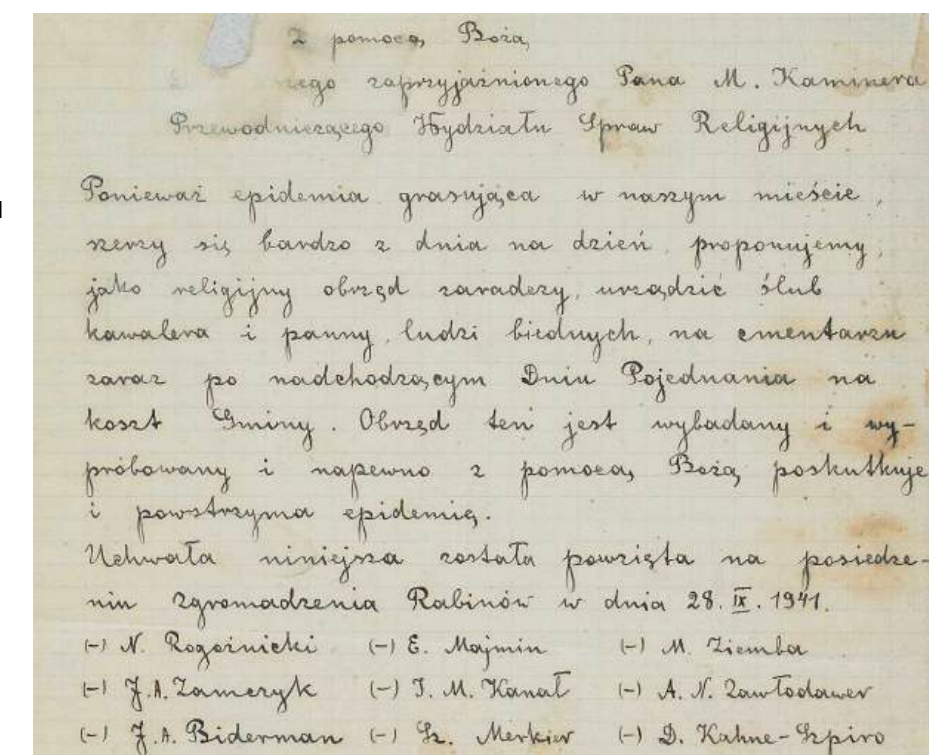 Z pomocą Bożą
nego zaprzyjaźnionego Pana M. Kaminera
Przewodniczącego Wydziału Spraw Religijnych
Ponieważ epidemia grasująca w naszym mieście,
szerzy się bardzo z dnia na dzień, proponujemy,
jako religijny obrzęd zaradczy, urządzić ślub
kawalera i panny, ludzi biednych, na cmentarzu
zaraz po nadchodzącym Dniu Pojednania na
koszt Gminy. Obrzęd ten jest wybadany i wy-
próbowany i napewno z pomocą Bożą poskutkuje
i powstrzyma epidemię.
Uchwała niniejsza została powzięta na posiedze-
niu Zgromadzenia Rabinów w dnia 28. IX. 1941.
(-) N. Rogoźnicki (-) E. Majmin (-) M. Ziemba
(-) J.A. Zamczyk (-) I. M. Kanał (-) A. N. Zawłodawer
(-) J.A. Biderman (-) Sz. Merkier (-) D. Kahne-Szpiro